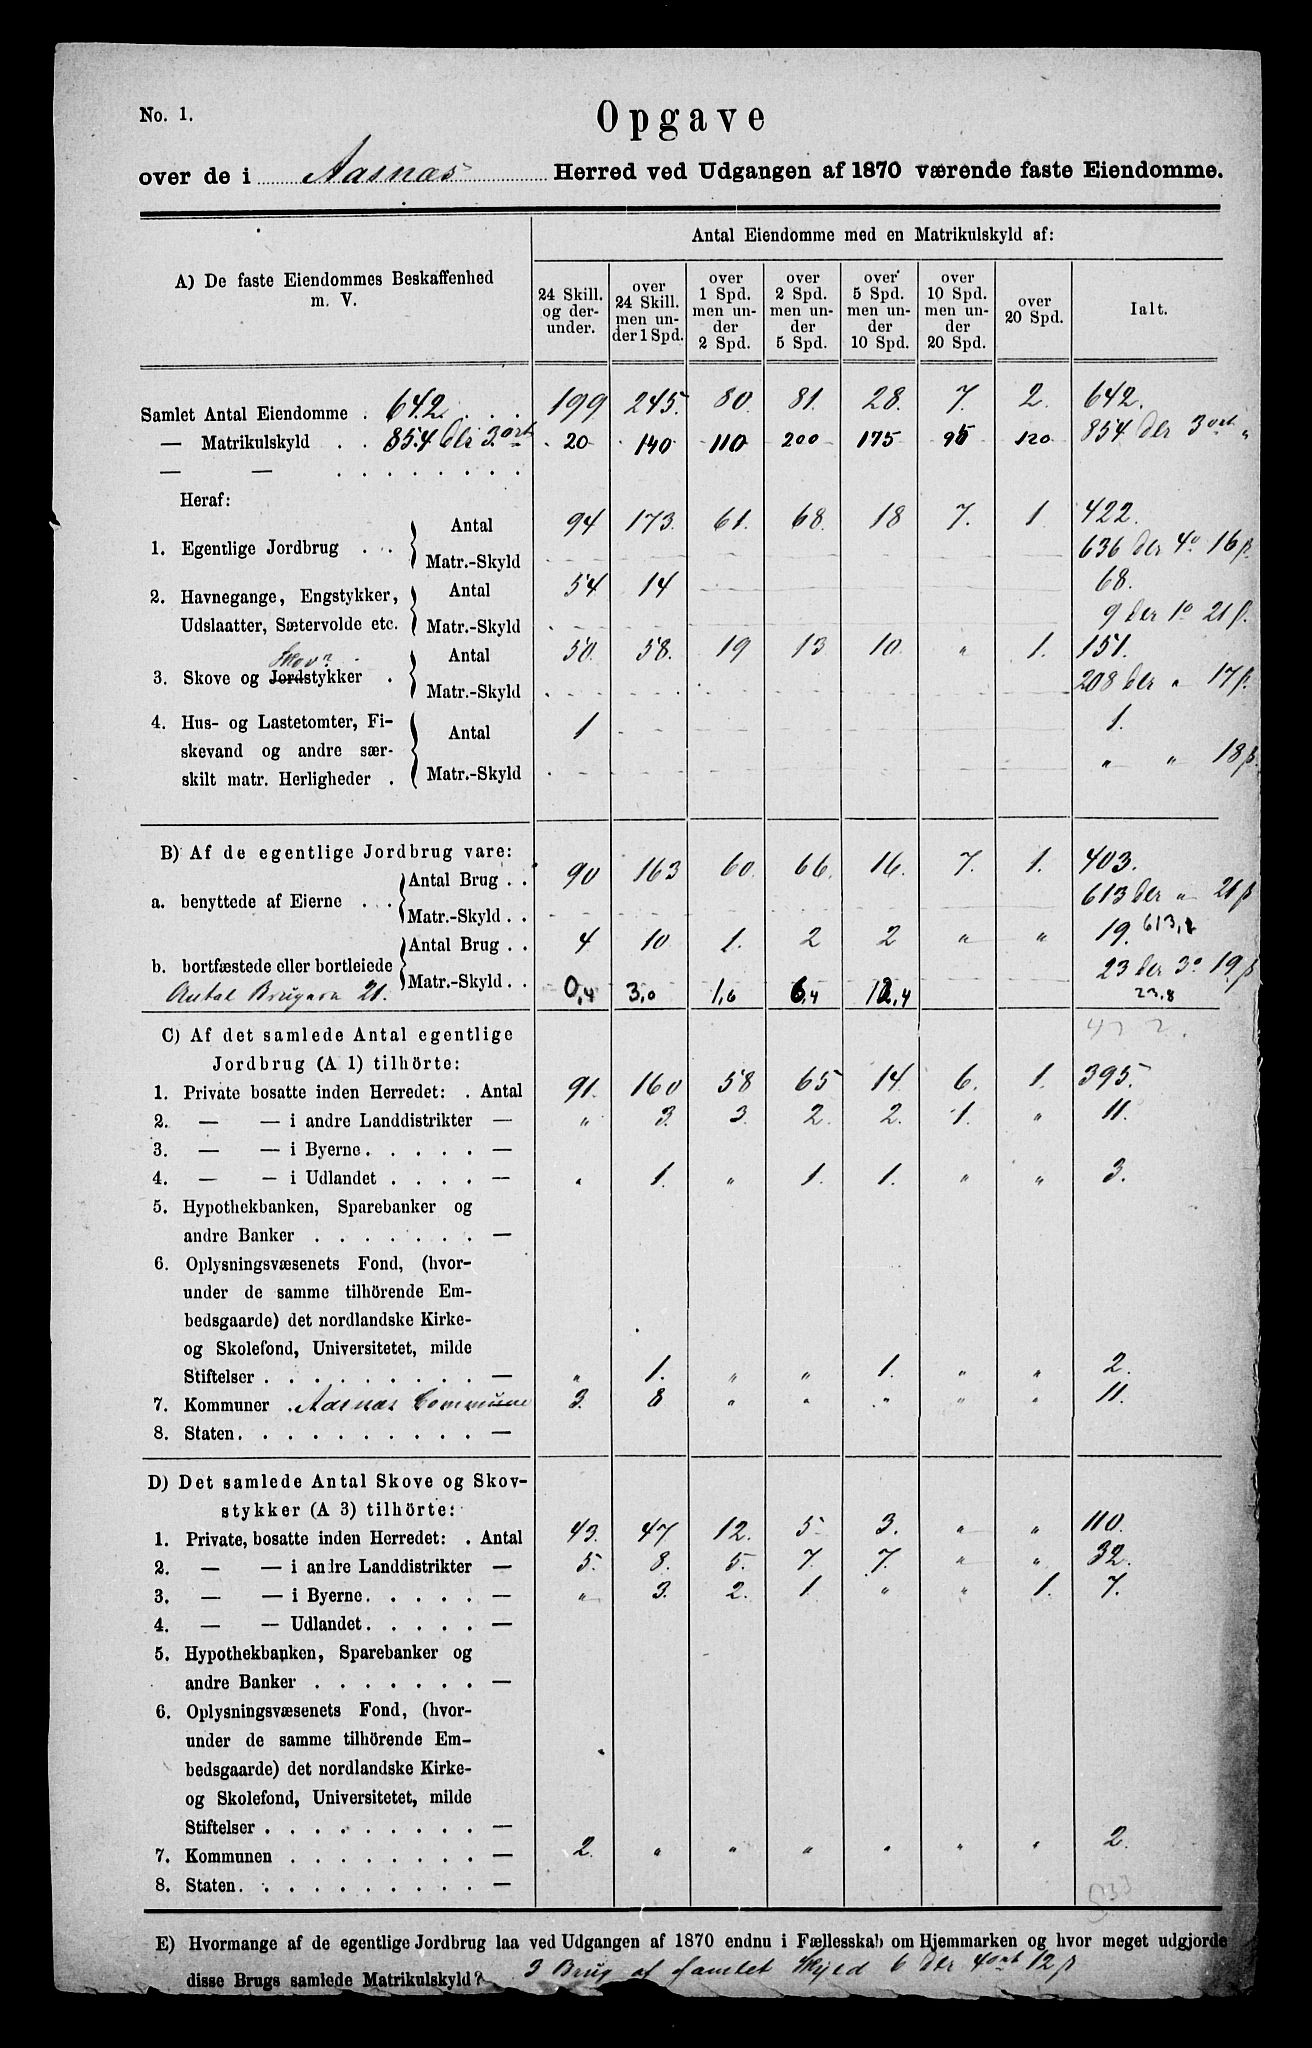 No. 1.
Opgave
over de i Aasnæs Herred ved Udgangen af 1870 værende faste Eiendomme.
A) De faste Eiendommes Beskaffenhed m. V.
Antal Eiendomme med en Matrikulskyld af:
24 Skill. og derunder. | over 24 Skill. men under 1 Spd. | over 1 Spd. men under 2 Spd. | over 2 Spd. men under 5 Spd. | over 5 Spd. men under 10 Spd. | over 10 Spd. men under 20 Spd. | over 20 Spd. | Ialt.
Samlet Antal Eiendomme . 642. . . . 199 245. 80. 81. 28. 7. 2. 642.
— Matrikulskyld . . 854 dlr 3 ort 20 140 110 200 175 95 120 854 dlr 3 ort "
— — . . . . . . . .
Heraf:
1. Egentlige Jordbrug . . . Antal 94 173. 61. 68. 18 7. 1. 422.
Matr.-Skyld 636 dlr 4o 16 β.
2. Havnegange, Engstykker, Antal 54 14 68.
Udslaatter, Sætervolde etc. Matr.-Skyld 9 dlr 1o 21 β.
Skov
3. Skove og Jordstykker . Antal 50. 58. 19 13 10. " 1. 151.
Matr.-Skyld 208 dlr " 17 β.
4. Hus- og Lastetomter, Fi-
skevand og andre sær- Antal 1 1.
skilt matr. Herligheder . Matr.-Skyld " " 18 β.
B) Af de egentlige Jordbrug vare:
a. benyttede af Eierne . . Antal Brug . . 90 163 60. 66. 16. 7. 1. 403.
Matr.-Skyld . . 613 dlr " 21 β
613,2
b. bortfæstede eller bortleiede Antal Brug . . 4 10 1. 2 2 " " 19.
Matr.-Skyld . . 0,4 3,0 1,6 6,4 12,4 23 dlr 3o 19 β
Antal Brugere 21. 23,8
C) Af det samlede Antal egentlige
Jordbrug (A 1) tilhörte:
1. Private bosatte inden Herredet: . Antal 91. 160 58 65 14 6. 1. 395.
2. — — i andre Landdistrikter — " 3. 3. 2. 2. 1. " 11.
3. — — i Byerne . . . . . —
4. — — i Udlandet . . . . — " 1. " 1. 1. " " 3.
5. Hypothekbanken, Sparebanker og
andre Banker . . . . . . . —
6. Oplysningsvæsenets Fond, (hvor-
under de samme tilhörende Em-
bedsgaarde) det nordlandske Kirke-
og Skolefond, Universitetet, milde
Stiftelser . . . . . . . . . — " 1. " " 1. " " 2.
7. Kommuner . Aasnæs Commune 3. 8 " " " " " 11.
8. Staten . . . . . . . . . . —
D) Det samlede Antal Skove og Skov-
stykker (A 3) tilhörte:
1. Private, bosatte inden Herredet: . Antal 43. 47 12. 5 3. " " 110.
2. — — i andre Landdistrikter — 5. 8. 5. 7. 7. " " 32.
3. — — i Byerne . . . . . — " 3. 2. 1. " " 1. 7.
4. — — Udlandet . . . . . —
5. Hypothekbanken, Sparebanker og
andre Banker . . . . . . . —
6. Oplysningsvæsenets Fond, (hvor-
under de samme tilhörende Em-
bedsgaarde) det nordlandske Kirke-
og Skolefond, Universitetet, milde
Stiftelser . . . . . . . . . —
7. Kommunen . . . . . . . . — 2. " " " " " " 2.
8. Staten . . . . . . . . . . —
E) Hvormange af de egentlige Jordbrug laa ved Udgangen af 1870 endnu i Fællesskab om Hjemmarken og hvor meget udgjorde
disse Brugs samlede Matrikulskyld? 3 Brug af samlet Skyld 6 dlr 4 ort 12 β